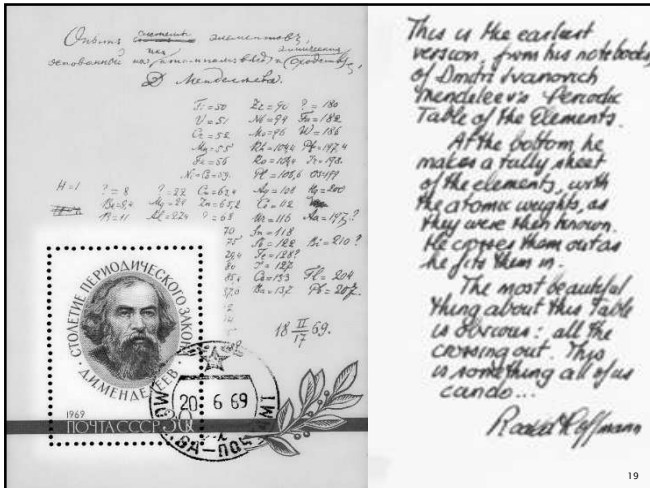 Опытъ системы элементовъ,
основанный на ихъ атомномъ вѣсѣ и химическомъ сходствѣ,
Д. Менделѣева.
Ti=50 Zr=90 ?=180
V=51 Nb=94 Ta=182
Cr=52 Mo=96 W=186
Mn=55 Rh=104,4 Pt=197,4
Fe=56 Ru=104,4 Ir=198.
Ni=Co=59. Pl=106,6 Os=199
H=1 ?=8 ?=22 Cu=63,4 Ag=108 Hg=200
Be=9,4 Mg=24 Zn=65,2 Cd=112
B=11 Al=27,4 ?=68 Ur=116 Au=197?
70 Sn=118
75 Sb=122 Bi=210?
79,4 Te=128?
80 J=127
85,4 Cs=133 Tl=204
87,6 Ba=137 Pb=207.
18 II/17 69.
СТОЛЕТИЕ ПЕРИОДИЧЕСКОГО ЗАКОНА
Д.И.МЕНДЕЛЕЕВ
1969
ПОЧТА СССР 30к
20 6 69
This is the earliest
version, from his notebooks,
of Dmitri Ivanovich
Mendeleev's Periodic
Table of the Elements.
At the bottom, he
makes a tally sheet
of the elements, with
the atomic weights, as
they were then known.
He crosses them out as
he fits them in.
The most beautiful
thing about this Table
is obvious: all the
crossing out. This
is something all of us
can do...
Roald Hoffmann
19